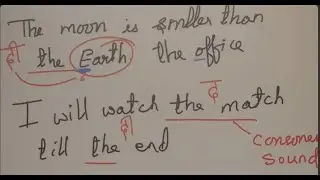 The moon is smller than
दी the Earth the office
द
I will watch the match
दी
till the end
sound